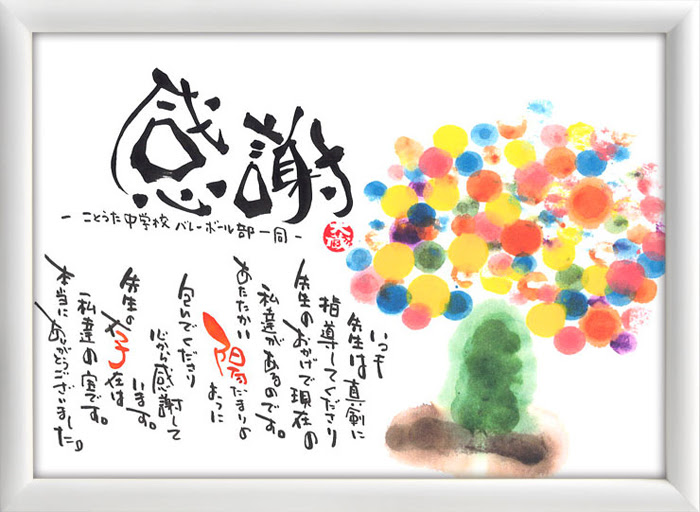 感謝
- ことうた中学校 バレーボール部一同 -
いつも
先生は真剣に
指導してくださり
先生のおかげで現在の
私達があるのです。
あたたかい陽だまりの
ように
包んでくださり
心から感謝して
います。
先生の存在は
私達の宝です。
本当にありがとうございました。